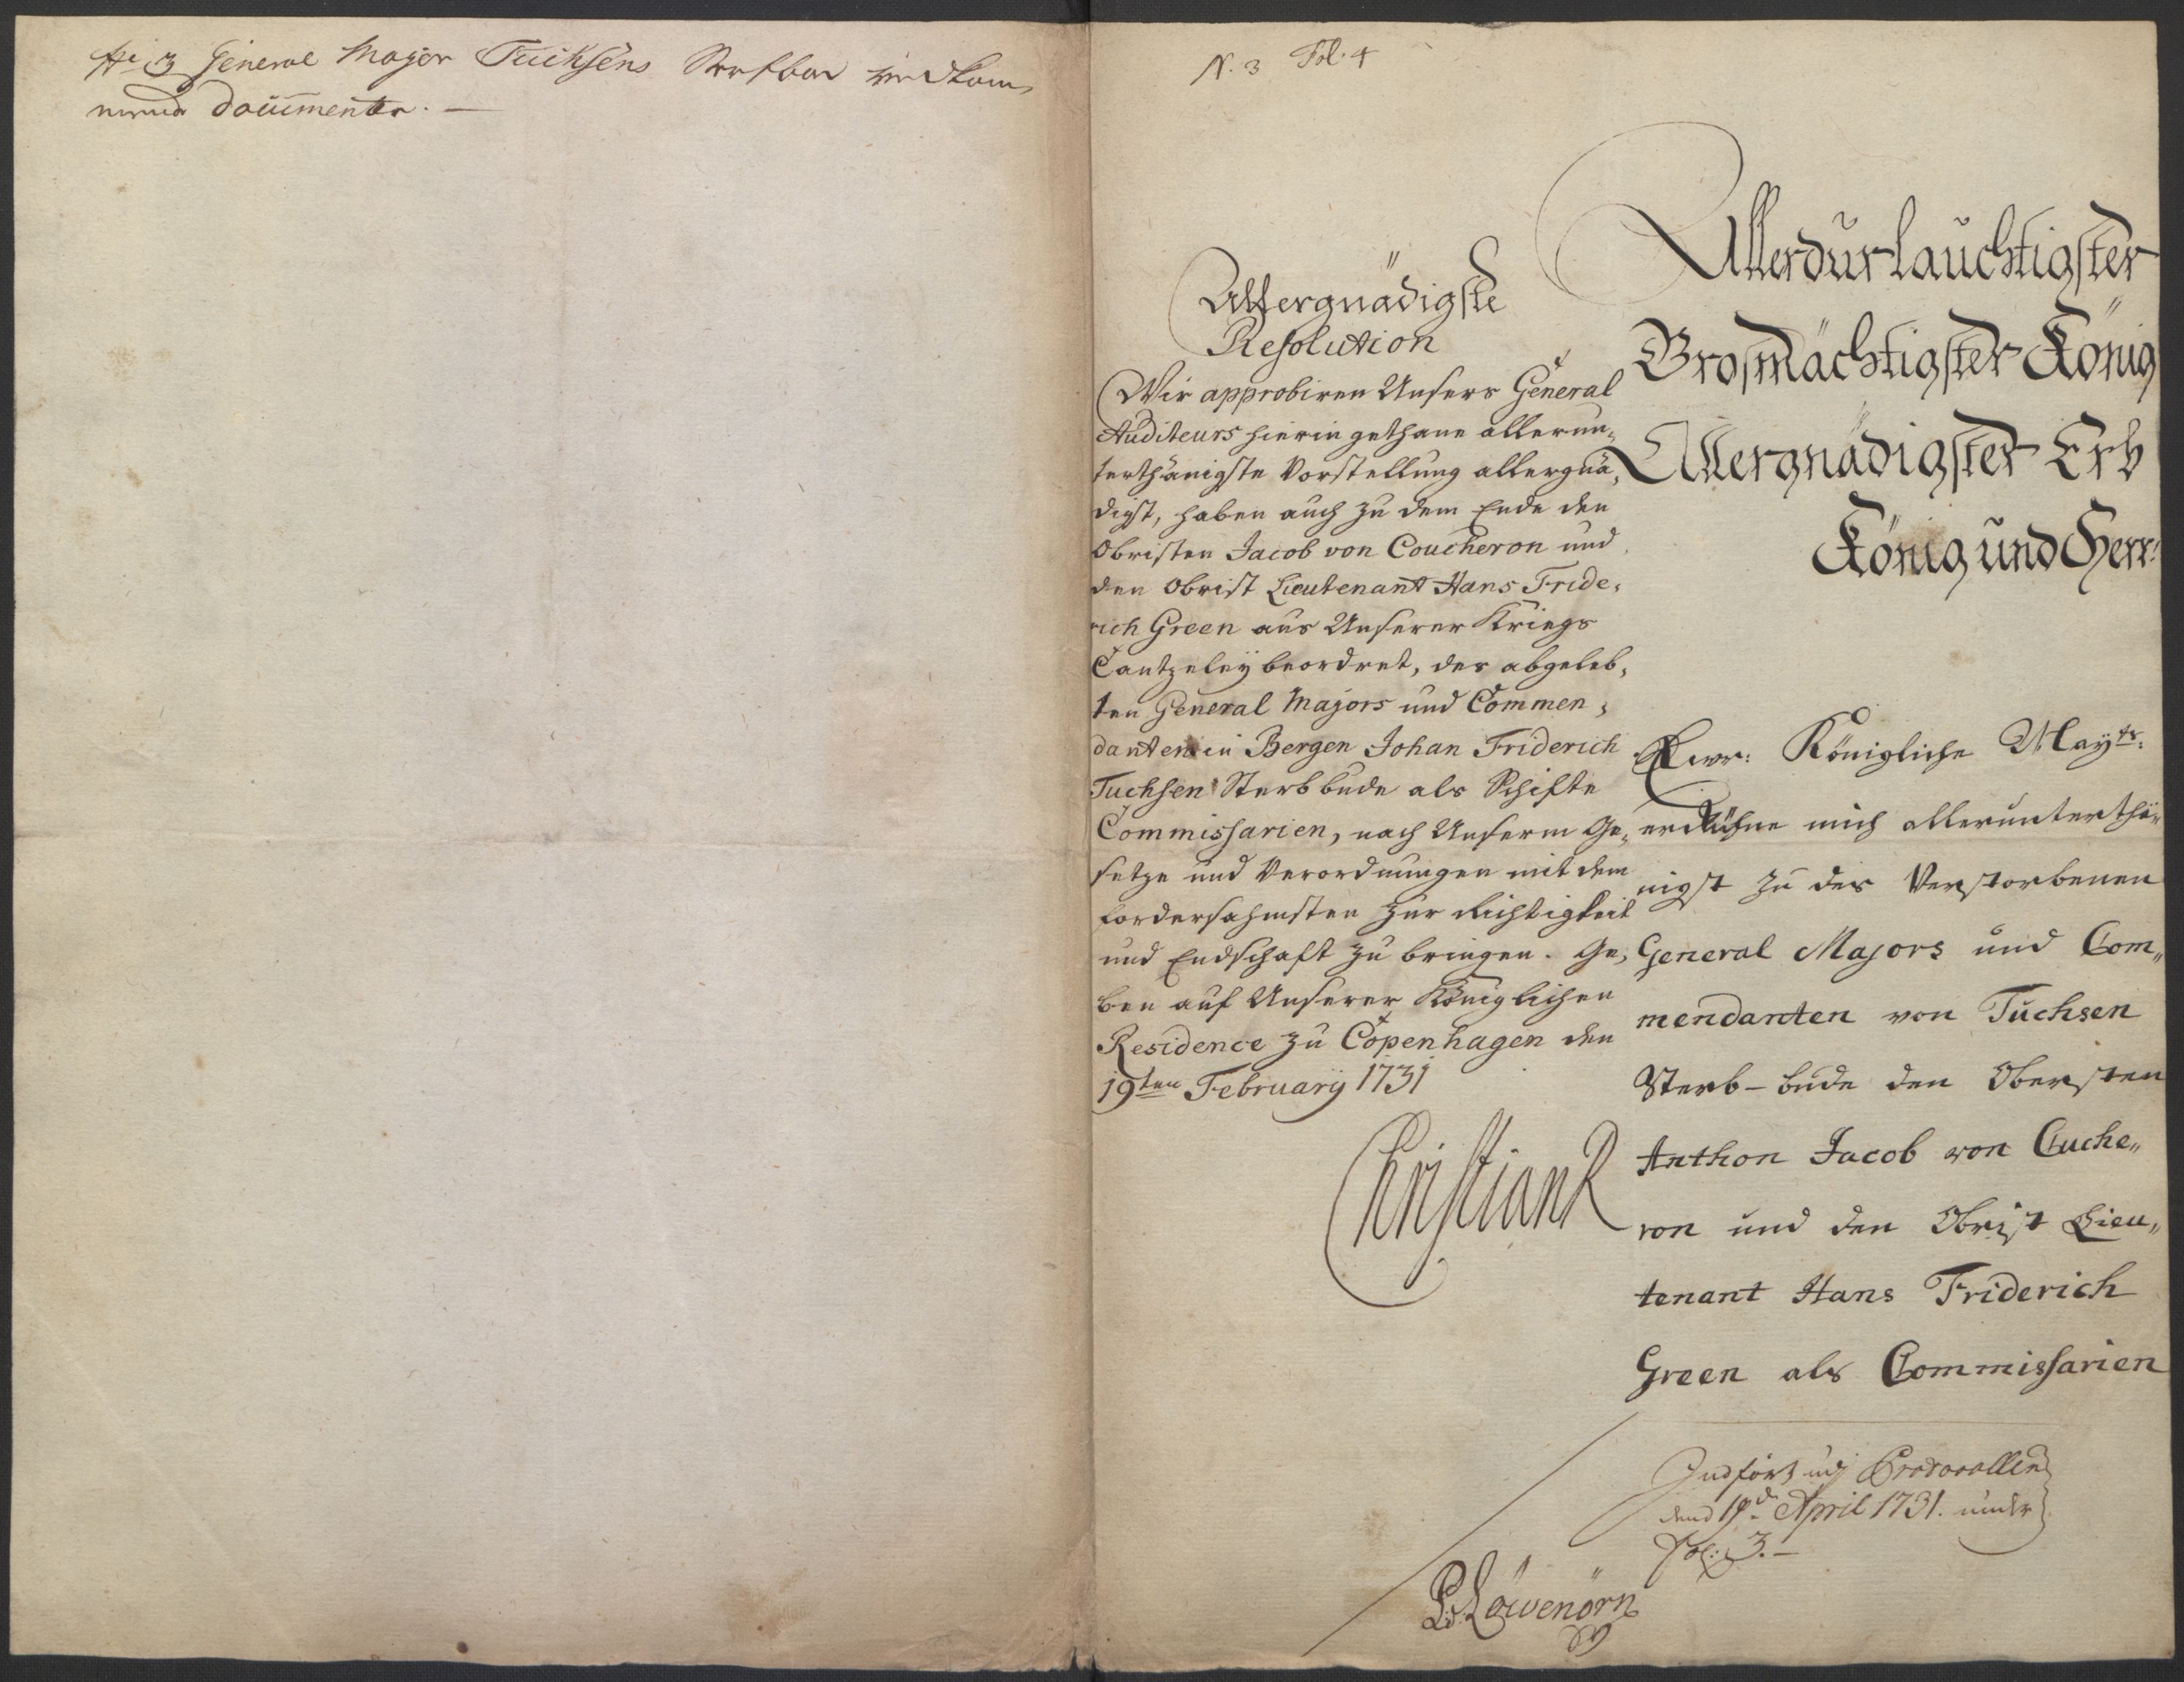 General Major Tuchsens Sterfboe vedkom-
mende Documenter. —
N. 3 Fol. 4
Allergnädigste
Resolution
Wir approbiren Unsers General
Auditeurs hierin gethane allerun-
terthänigste Vorstellung allergnä-
digst, haben auch zu dem Ende den
Obristen Jacob von Coucheron und
den Obrist Lieutenant Hans Fride-
rich Green aus Unserer Kriegs
Cantzeley beordret, des abgeleb-
ten General Majors und Commen-
danten in Bergen Johan Friderich
Tuchsen Sterbbude als Schifte
Commissarien, nach Unserm Ge-
setze und Verordnungen mit dem
fordersahmsten zur Richtigkeit
und Endschaft zu bringen. Ge-
ben auf Unserer Königlichen
Residence zu Copenhagen den
19ten Februarÿ 1731
Christian R
Allerdurlauchtigster
Grosmächtigster König
Allergnädigster Erb
König und Herr:
Ewr: Königliche Mayts:
erkühne mich allerunterthä-
nigst zu des Verstorbenen
General Majors und Com„
mendanten von Tuchsen
Sterb-bude den Obersten
Anthon Jacob von Cuche„
ron und den Obrist Lieu„
tenant Hans Friderich
Green als Commissarien
Indført udj Protocollen
dend April 1731. under
Fol: 3. —
P. Löwenörn